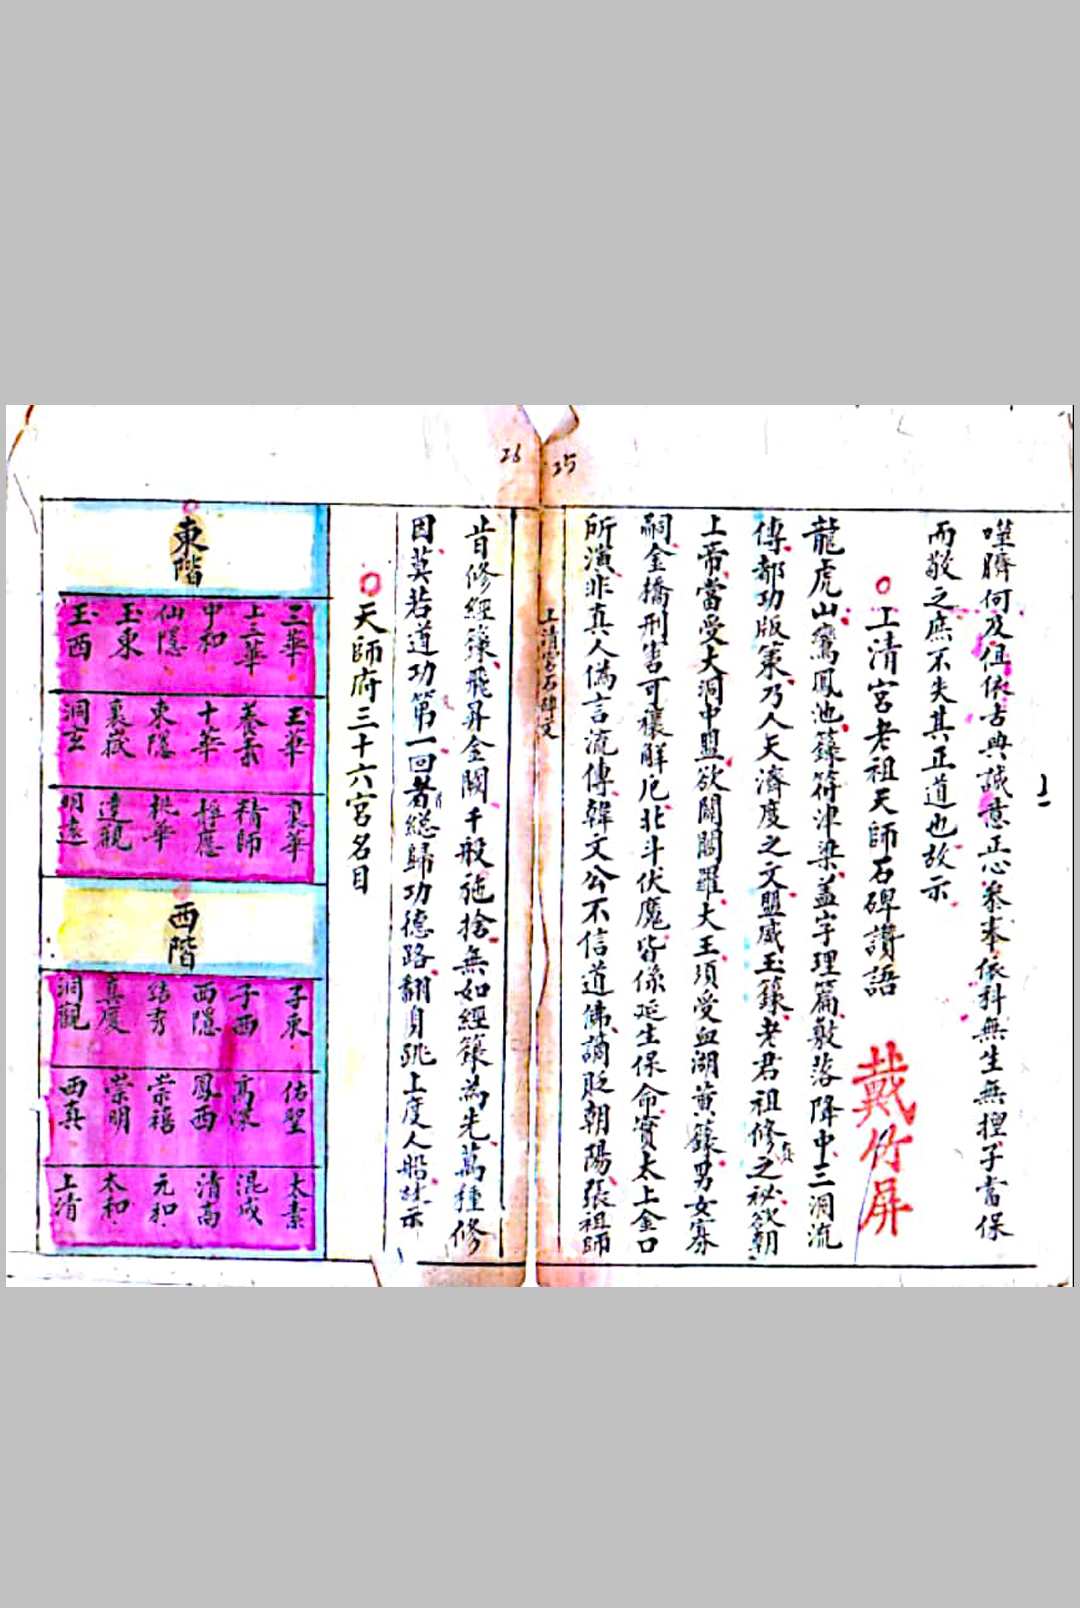 噬臍何及但依古典誠意正心叅奉依科無生無捏子當保
而敬之庶不失其正道也故示
上清宮老祖天師石碑讚語
戴竹屏
龍虎山鸞鳳池籙符津梁蓋字理篇敷落降中三洞流
傳都功版策乃人天濟度之文盟威玉籙老君祖修真之祕欲朝
上帝當受大洞中盟欲開閻羅大王須受血湖黃籙男女寡
嗣金橋刑害可禳解厄北斗伏魔皆係延生保命實太上金口
所演非真人偽言流傳韓文公不信道佛謫貶朝陽張祖師
上清宮石碑文
25
26
昔修經籙飛昇金闕千般施捨無如經籙為先萬種修
因莫若道功第一回者總歸功德路翻身跳上度人船 示
天師府三十六宮名目
東階
三華 上三華 中和 仙隱 玉東 玉西
玉華 養素 十華 東隱 襄嶽 洞玄
襄華 精師 靜應 桃華 達觀 明遠
西階
子東 子西 西隱 結秀 真慶 洞觀
佑聖 高深 鳳西 崇禧 崇明 西真
太素 混成 清高 元和 太和 上清